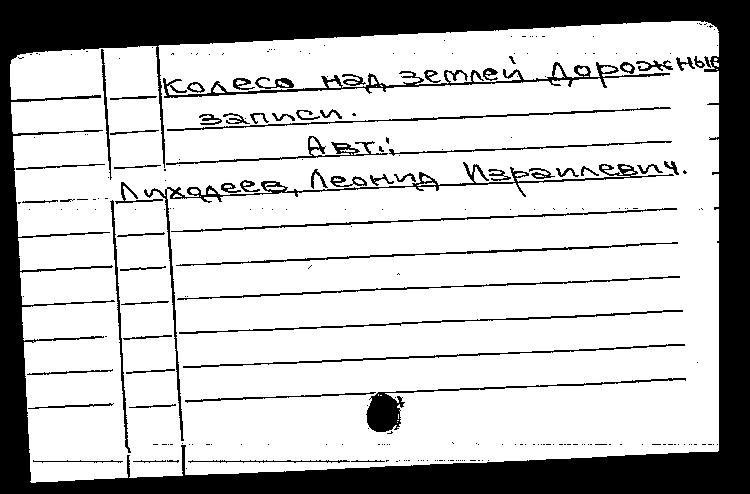 Колесо над землей Дорожные
записи.
Авт.:
Лиходеев, Леонид Израилевич.